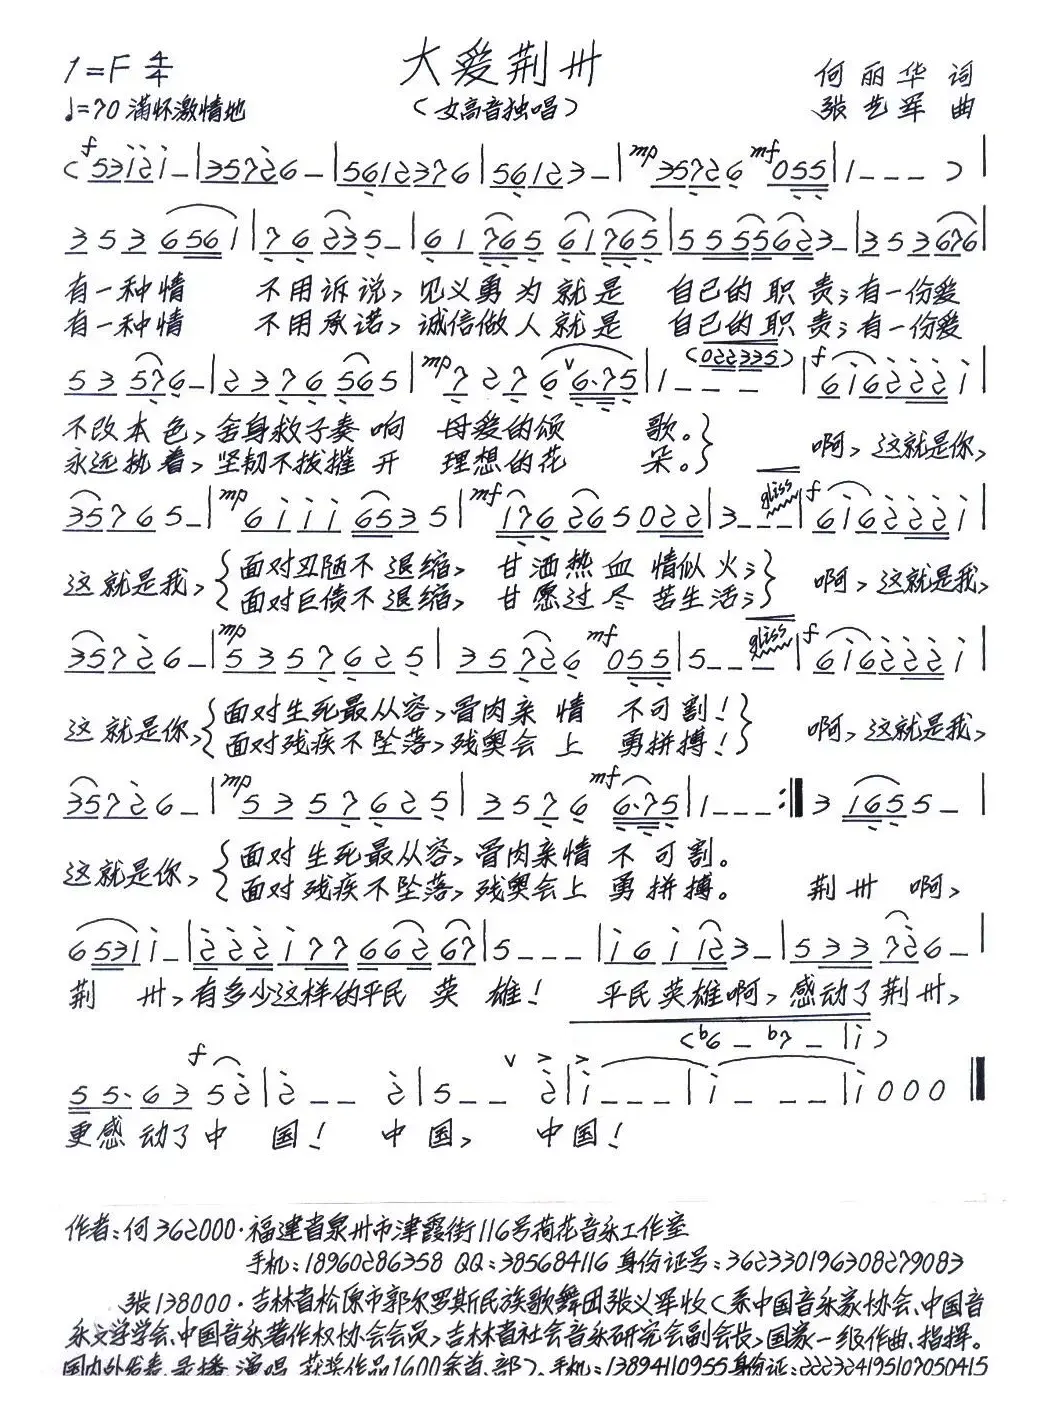 1=F 4/4
大爱荆州
何丽华 词
♩=70 满怀激情地
(女高音独唱)
张艺军 曲
f mp mf
(53i2i–|35726–|5612376|56123–|35726 055|1––– )|
3 5 3 6561|76235–|61765 61765|55556623–|353676|
有一种情 不用诉说，见义勇为就是 自己的职责；有一份爱
有一种情 不用承诺，诚信做人就是 自己的职责；有一份爱
(022335)
mp f
53576–|2376565|7276 6·75|1–––|6i6222i|
不改本色，舍身救子奏响 母爱的颂 歌。
永远执着，坚韧不拔摧开 理想的花 朵。
啊，这就是你，
mp mf gliss f
35765–|6iii6535|i76265022|3–––|6i6222i|
这就是我，
面对丑陋不退缩，甘洒热血情似火；
面对巨债不退缩，甘愿过尽苦生活；
啊，这就是我，
mp mf gliss f
35726–|5357625|35726 055|5–––|6i6222i|
这就是你，
面对生死最从容，骨肉亲情 不可割！
面对残疾不坠落，残奥会上 勇拼搏！
啊，这就是我，
mp mf
35726–|5357625|3576 6·75|1–––:‖3 1655–|
这就是你，
面对生死最从容，骨肉亲情不可割。
面对残疾不坠落，残奥会上勇拼搏。
荆州啊，
6531i–|222i7766267|5–––|i6ii23–|533726–|
荆州，有多少这样的平民英雄！ 平民英雄啊，感动了荆州，
(b6–b7–|i)
f v > >
55·6352|2––2|5––2|i–––|i–––|i000‖
更感动了中国！中国，中国！
作者：何362000·福建省泉州市津霞街116号荷花音乐工作室
手机：18960286358 QQ：385684116 身份证号：362330196308279083
张138000·吉林省松原市郭尔罗斯民族歌舞团张义军收（系中国音乐家协会、中国音
乐文学学会、中国音乐著作权协会会员，吉林省社会音乐研究会副会长，国家一级作曲、指挥。
国内外发表、录播、演唱、获奖作品1600余首、部）。手机：13894110955身份证：222324195107050415